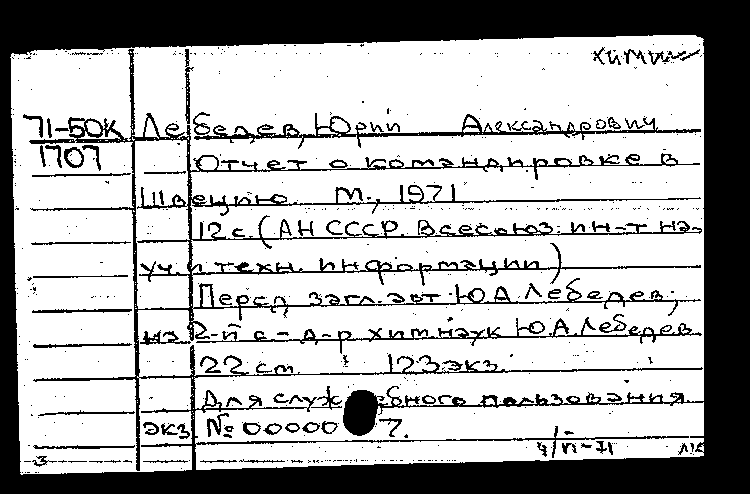 химия
71-50К Лебедев, Юрий Александрович
1707 Отчет о командировке в
Швецию. М., 1971
12 с. (АН СССР. Всесоюз. ин-т на-
уч. и техн. информации)
Перед загл. авт. Ю.А. Лебедев;
на 2-й с. - д-р хим. наук Ю.А. Лебедев
22 см. 123 экз.
Для служебного пользования
экз. № 00000 7.
3 4/II-71